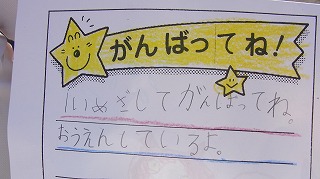 がんばってね!
1いめざしてがんばってね。
おうえんしているよ。